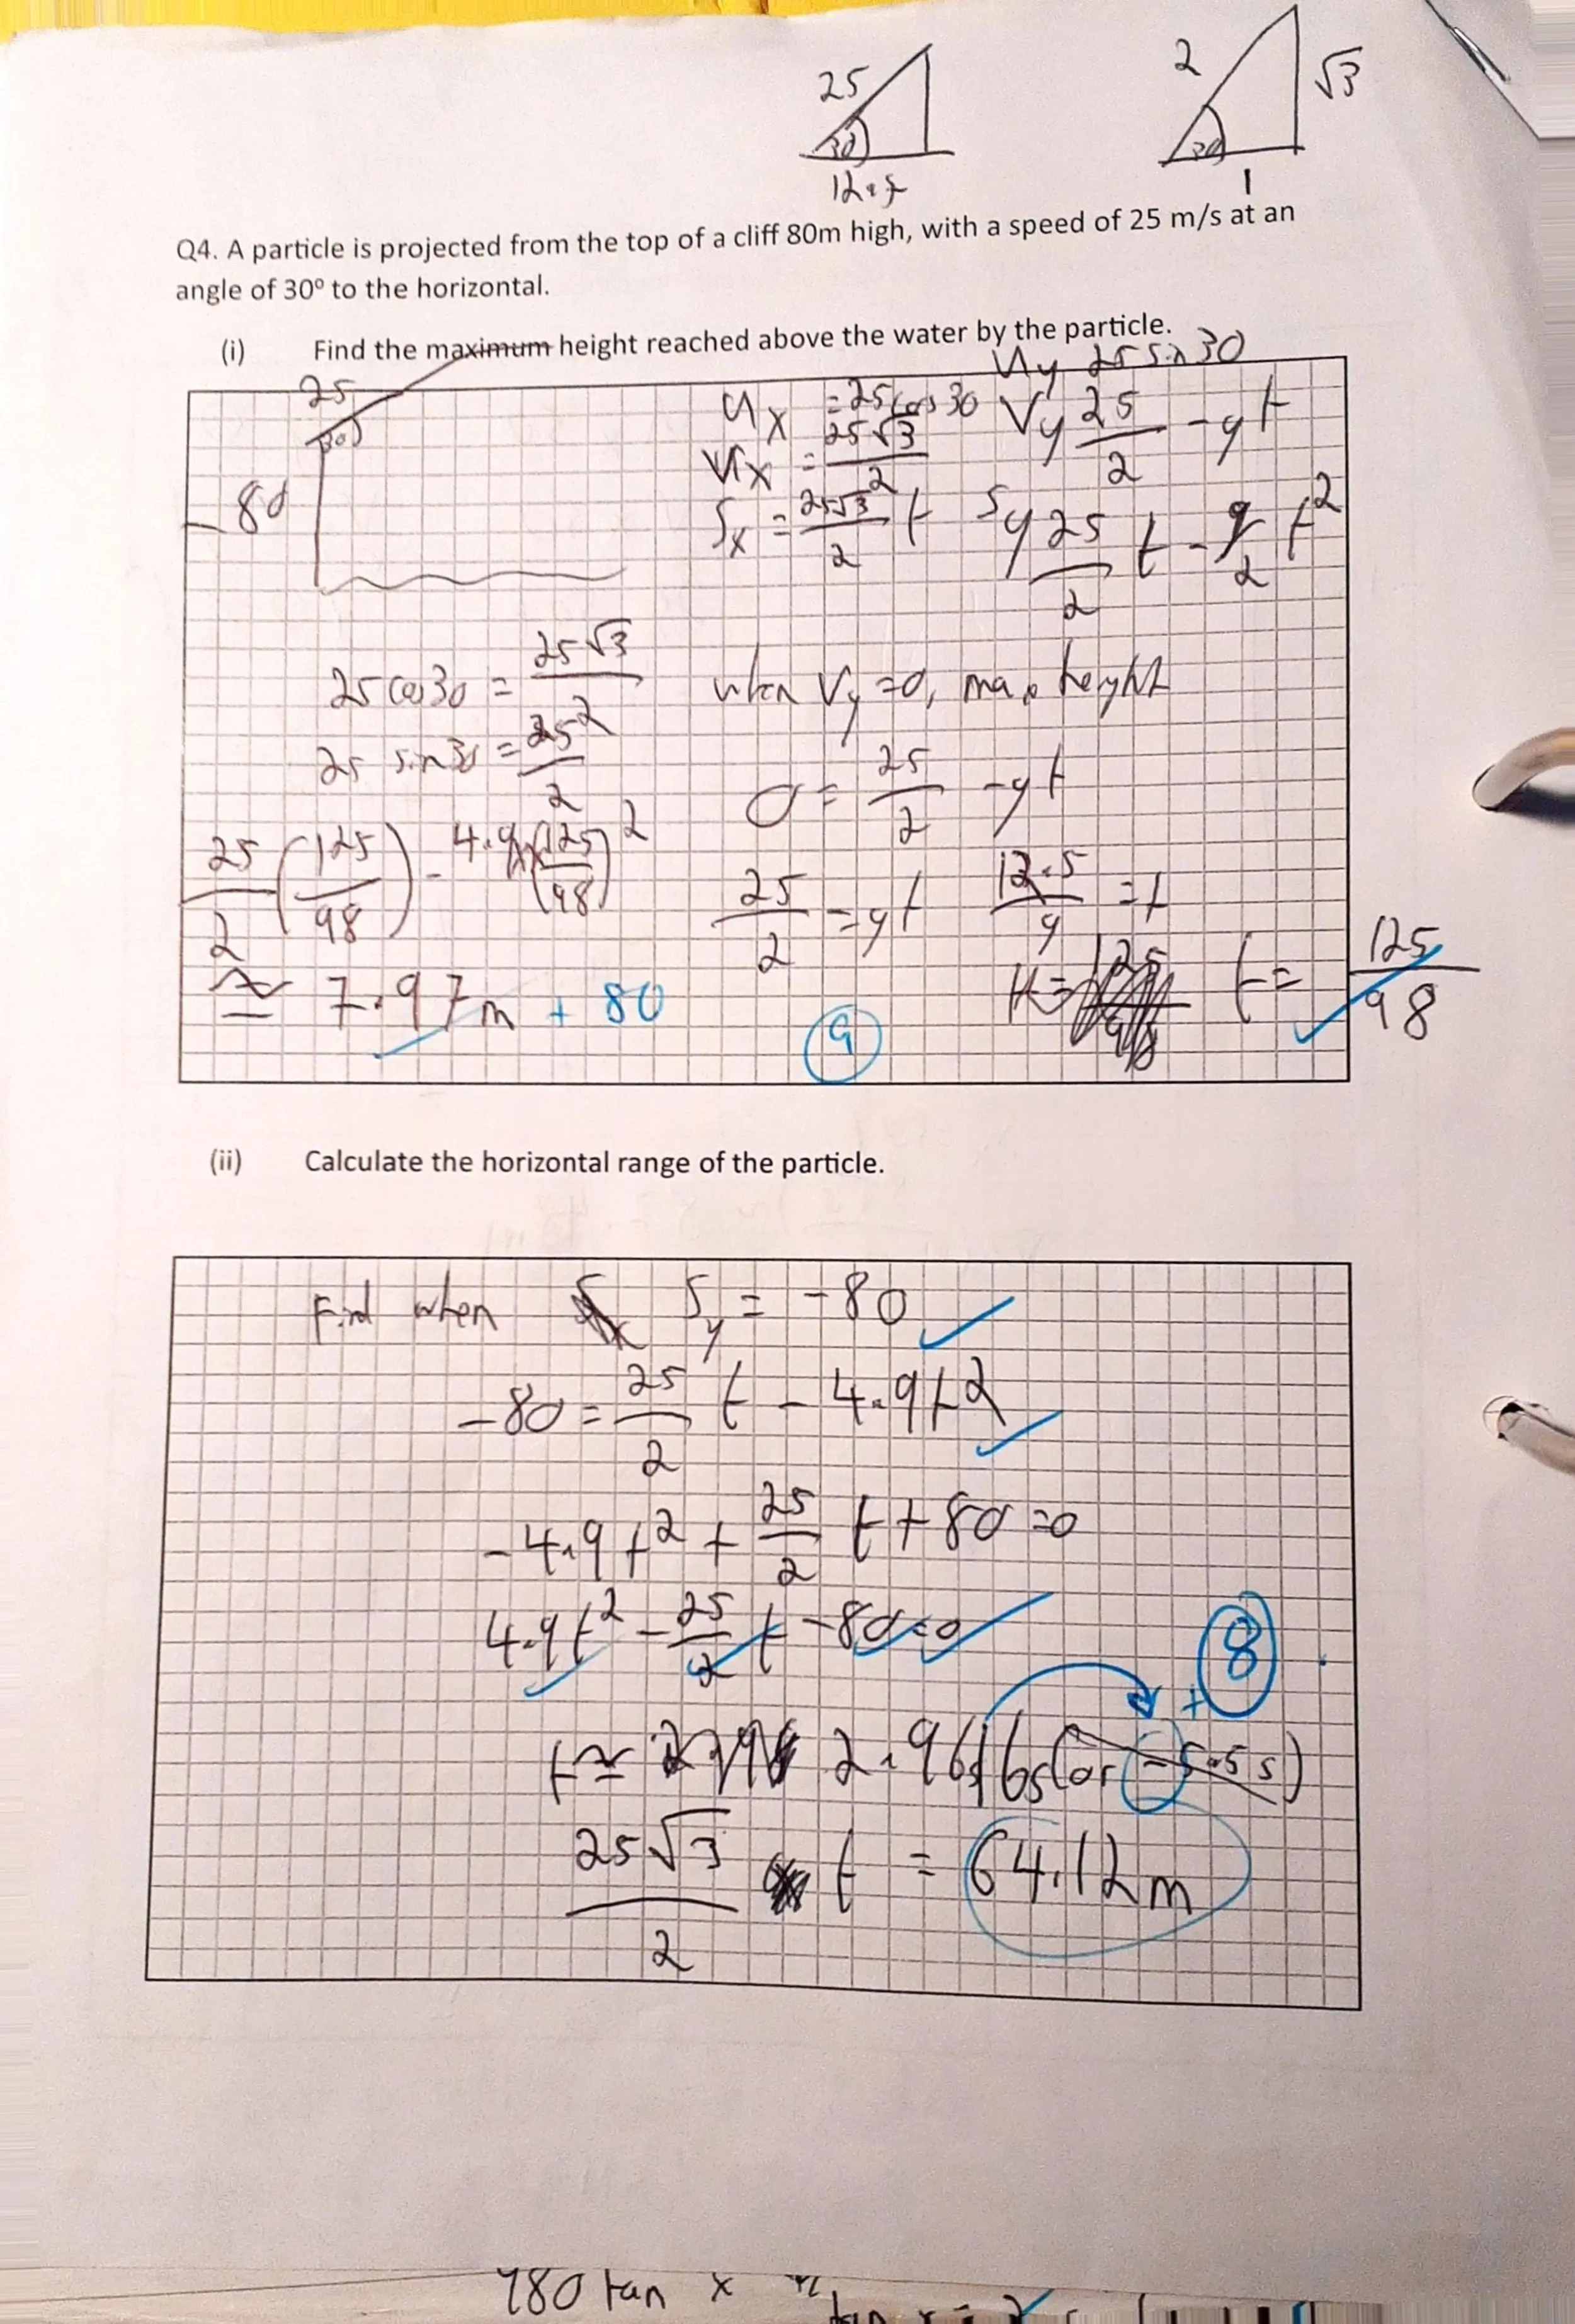 25
30
12.5
2
√3
30
1
Q4. A particle is projected from the top of a cliff 80m high, with a speed of 25 m/s at an
angle of 30º to the horizontal.
(i) Find the maximum height reached above the water by the particle.
25
30
-80
Ux = 25cos30
Uy 25 sin 30
Vx = 25√3/2
Vy 25/2 - gt
Sx = 25√3/2 t
Sy 25/2 t - g/2 t²
25 cos30 = 25√3/2
25 sin30 = 25/2
25/2 (125/98) - 4.9 x (125/98)²
≈ 7.97m + 80
when Vy = 0, max height
0 = 25/2 - gt
25/2 = gt
12.5/g = t
t = 125/98
9
(ii) Calculate the horizontal range of the particle.
Find when Sy = -80
-80 = 25/2 t - 4.9t²
-4.9t² + 25/2 t + 80 = 0
4.9t² - 25/2 t - 80 = 0
8
t ≈ 2.9616s (or -5.5s)
+
25√3/2 t = 64.12m
780 tan x
tan x =